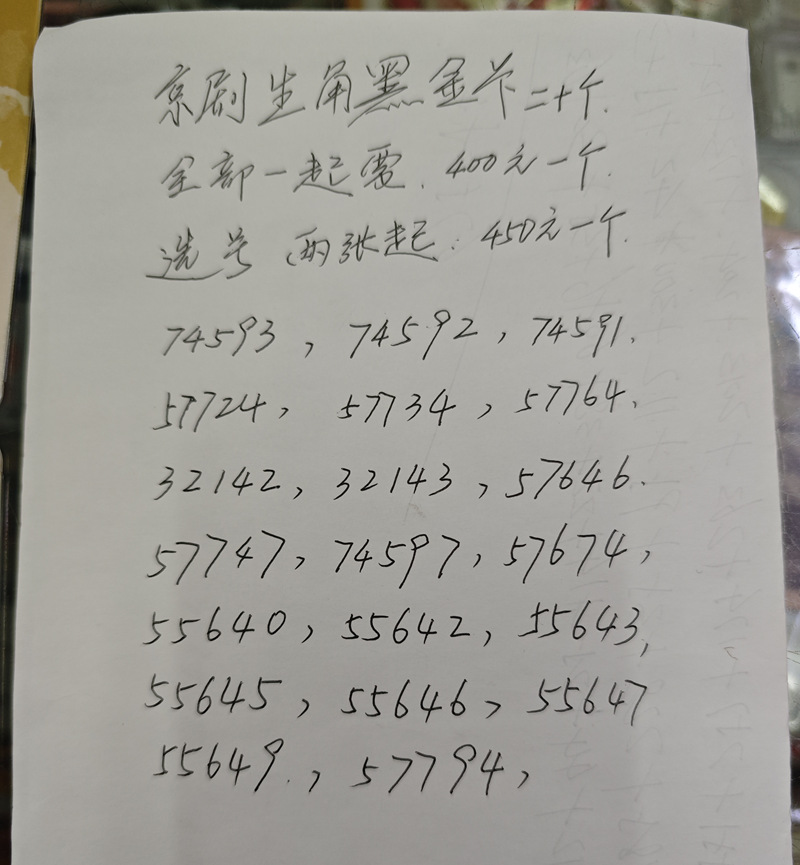 京剧生角黑金卡二十个.
全部一起要.400元一个.
选号 两张起:450元一个.
74593,74592,74591.
57724,57734,57764.
32142,32143,57646.
57747,74597,57674,
55640,55642,55643,
55645,55646,55647
55649.,57794,